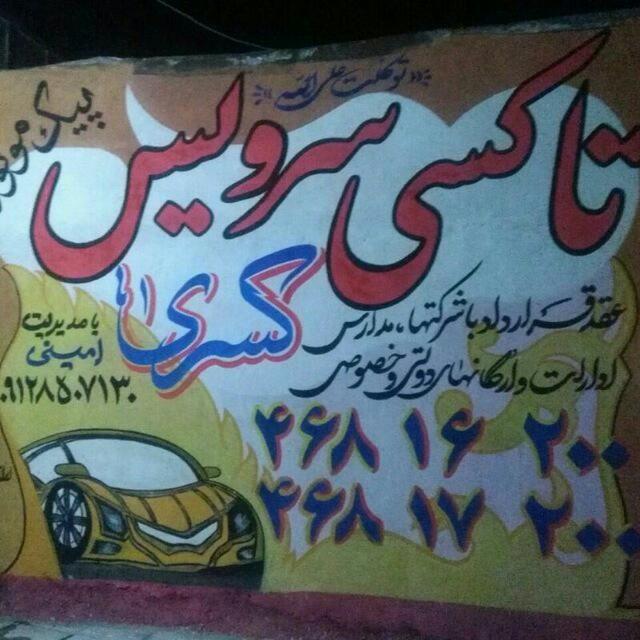 توکلت علی الله
پیک موتوری
تاکسی سرویس
کسری
عقد قرارداد با شرکتها، مدارس
ادارات و ارگانهای دولتی و خصوصی
با مدیریت
امینی
۰۹۱۲۸۵۰۷۱۳۰
۴۶۸ ۱۶ ۲۰۰
۴۶۸ ۱۷ ۲۰۰